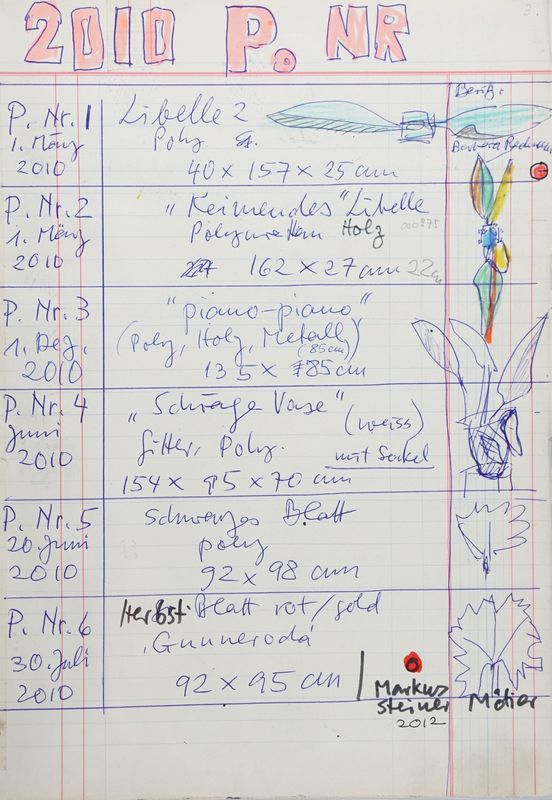 2010 P. NR
Besitz:
P. Nr. 1 Libelle 2
1. März Poly
2010 40 x 157 x 25 cm
Barbara
P. Nr. 2 "Keimendes" Libelle
1. März Holz 000275
2010 162 x 27 cm 22 cm
P. Nr. 3 "piano-piano"
1. Dez. (Poly, Holz, Metall)
(85cm)
2010 135 x 85 cm
P. Nr. 4 "Schräge Vase"
Juni Gitter, Poly. (weiss)
2010 mit Sockel
154 x 95 x 70 cm
P. Nr. 5 Schwarzes Blatt
20. Juni poly
2010 92 x 98 cm
P. Nr. 6 Herbst-Blatt rot/gold
30. Juli 'Gunneroda'
2010 92 x 95 cm
Markus
Steiner Métier
2012